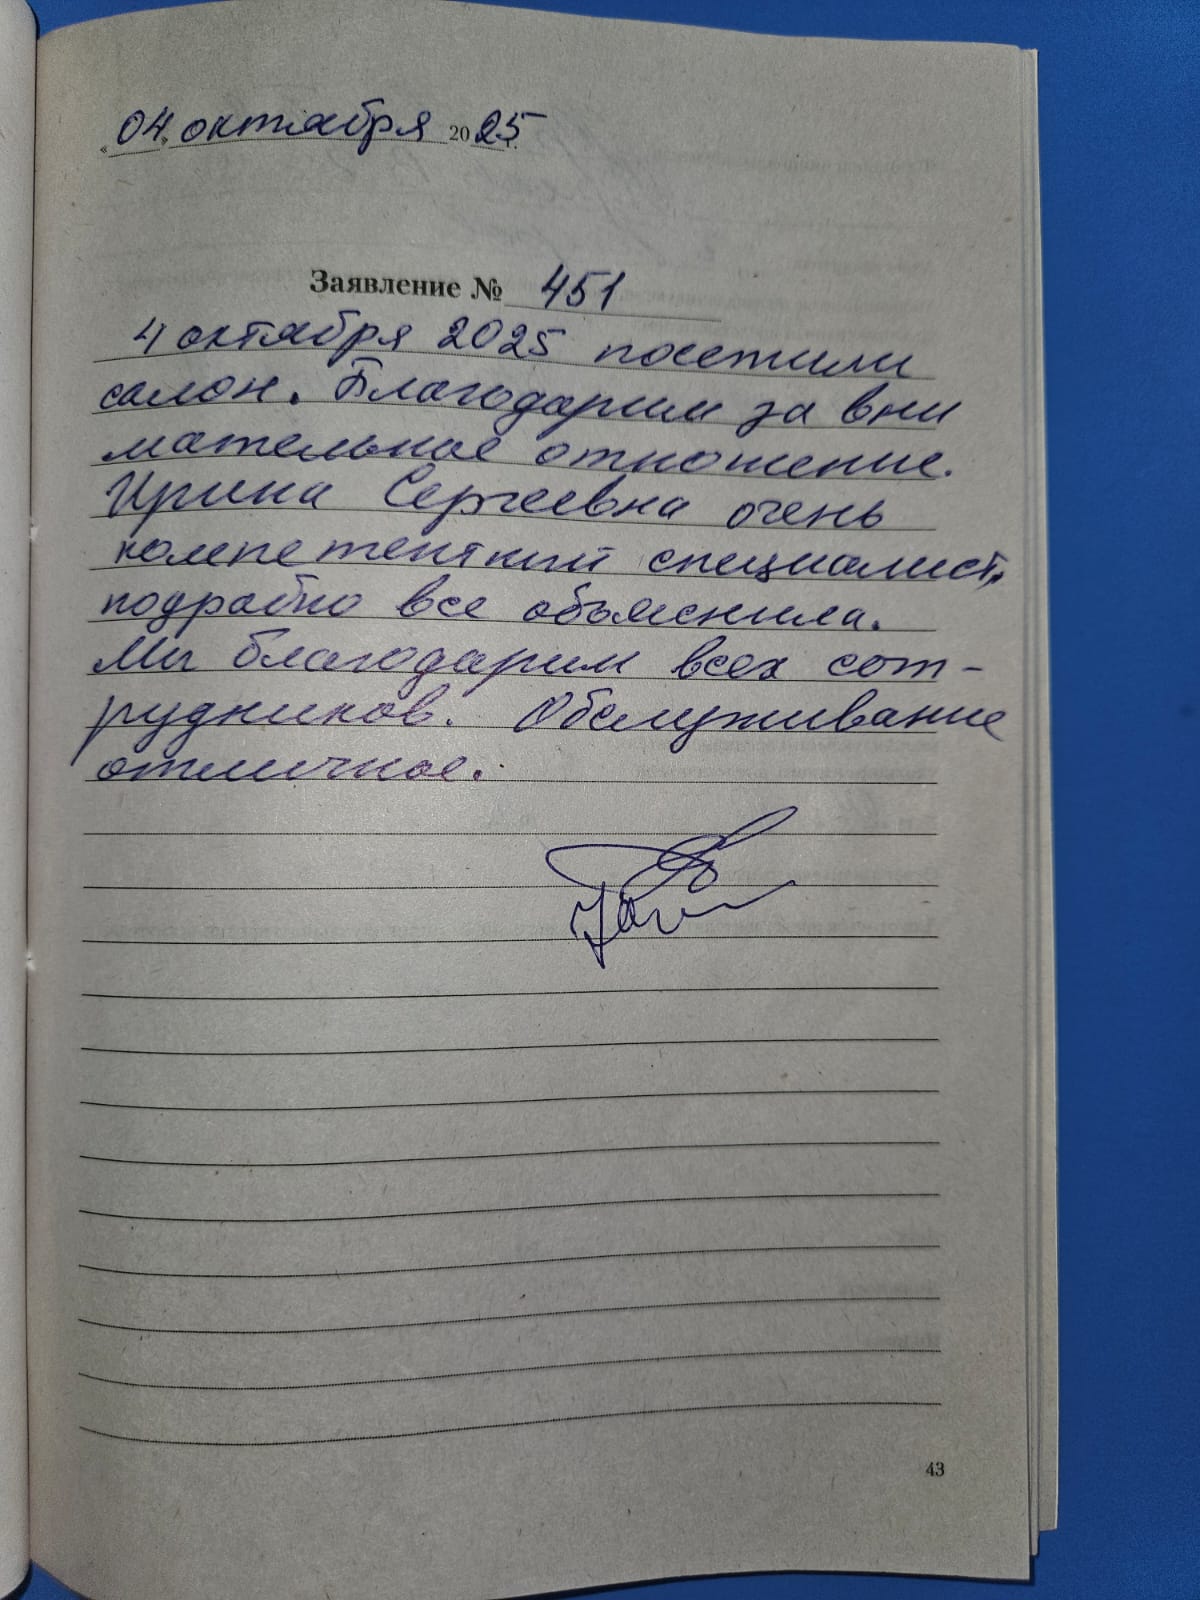 «04» октября 2025 г.
Заявление № 451
4 октября 2025 посетили
салон. Благодарим за вни
мательное отношение.
Ирина Сергеевна очень
компетенткий специалист,
подробно все объяснила.
Мы благодарим всех сот-
рудников. Обслуживание
отличное.
43